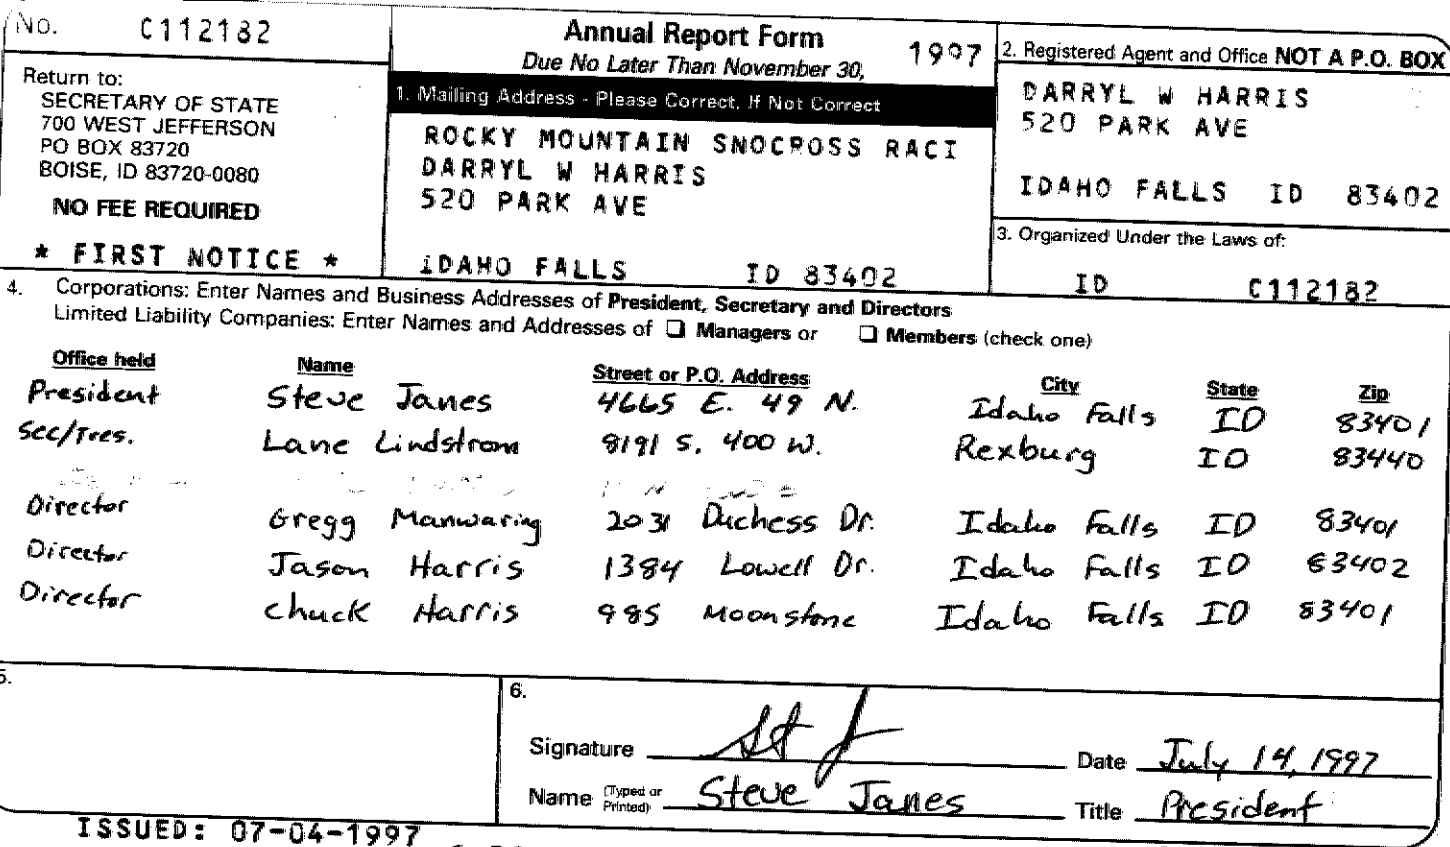 No. C112182
Return to:
SECRETARY OF STATE
700 WEST JEFFERSON
PO BOX 83720
BOISE, ID 83720-0080
NO FEE REQUIRED
* FIRST NOTICE *
Annual Report Form
Due No Later Than November 30, 1997
1. Mailing Address - Please Correct, If Not Correct
ROCKY MOUNTAIN SNOCROSS RACI
DARRYL W HARRIS
520 PARK AVE
IDAHO FALLS ID 83402
2. Registered Agent and Office NOT A P.O. BOX
DARRYL W HARRIS
520 PARK AVE
IDAHO FALLS ID 83402
3. Organized Under the Laws of:
ID C112182
4. Corporations: Enter Names and Business Addresses of President, Secretary and Directors
Limited Liability Companies: Enter Names and Addresses of ❑ Managers or ❑ Members (check one)
Office held Name Street or P.O. Address City State Zip
President Steve Janes 4665 E. 49 N. Idaho Falls ID 83401
Sec/Tres. Lane Lindstrom 8191 S. 400 W. Rexburg ID 83440
Director Gregg Manwaring 2031 Duchess Dr. Idaho Falls ID 83401
Director Jason Harris 1384 Lowell Dr. Idaho Falls ID 83402
Director Chuck Harris 985 Moonstone Idaho Falls ID 83401
5.
6.
Signature Date July 14, 1997
Name (Typed or Printed) Steve Janes Title President
ISSUED: 07-04-1997